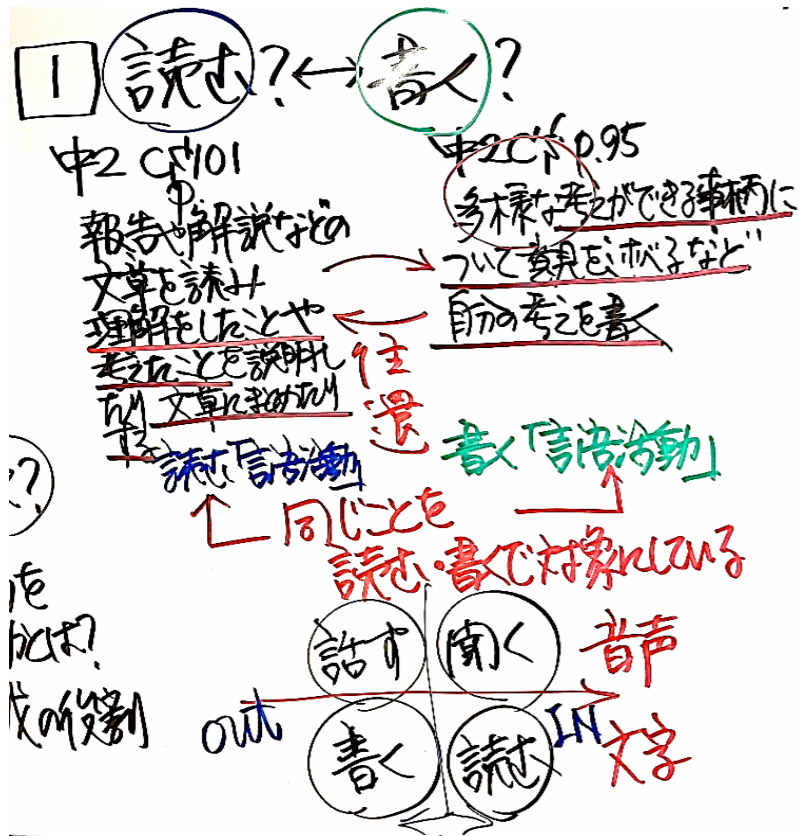 1 読む?↔書く?
中2 C(1) P101
報告や解説などの
文章を読み
理解をしたことや
考えたことを説明し
たり文章にまとめたり
する
読む「言語活動」
中2 C P.95
多様な考えができる事柄に
ついて意見を述べるなど
自分の考えを書く
往還
書く「言語活動」
同じことを
読む・書くで対象にしている
話す 聞く 音声
OUT IN
書く 読む 文字
?
を
とは?
の役割